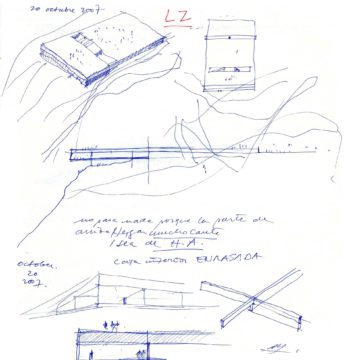 20 octubre 2007
LZ
no pasa nada porque la parte de
arriba llegara mucho
Isla de H.A.
caja inferior ENRASADA
october.
20
2007.